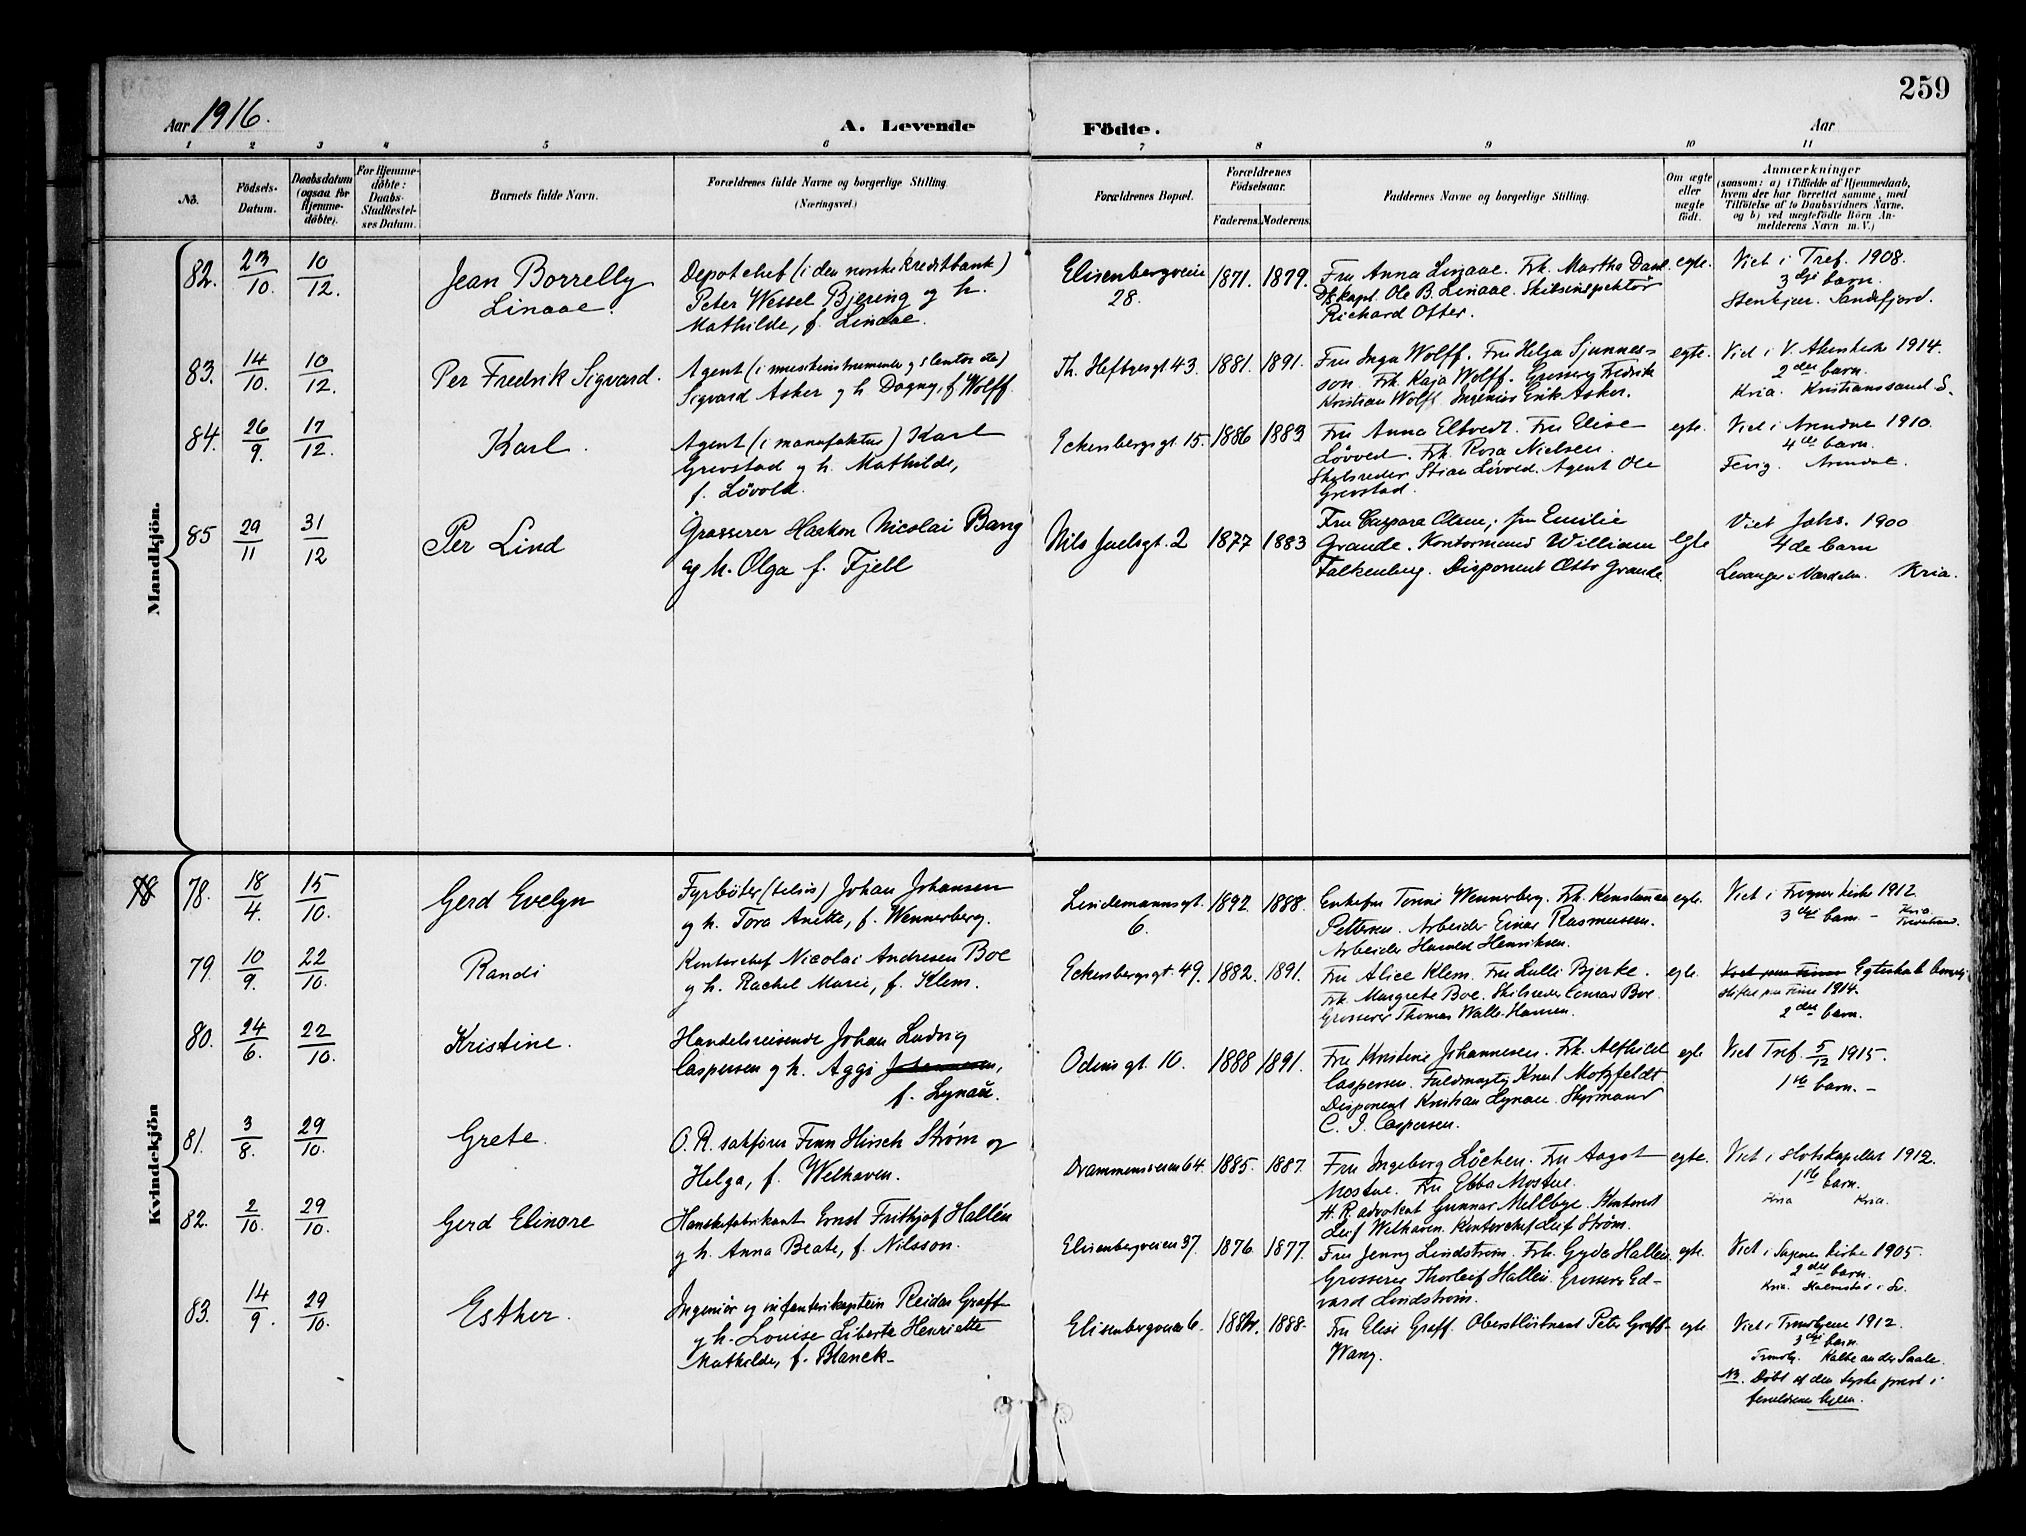 259
Aar 1916.
A. Levende Födte.
Aar
1 2 3 4 5 6 7 8 9 10 11
No.
Födsels-Datum.
Daabsdatum (ogsaa for Hjemmedöbte).
For Hjemmedöbte: Daabs-Stadfæstelses Datum.
Barnets fulde Navn.
Forældrenes fulde Navne og borgerlige Stilling.
(Næringsvei.)
Forældrenes Bopæl.
Forældrenes Födselsaar.
Faderens. Moderens.
Faddernes Navne og borgerlige Stilling.
Om ægte eller uægte födt.
Anmærkninger
(saasom: a) i Tilfælde af Hjemmedaab,
hvem der har forrettet samme, med
Tilföielse af to Daabsvidners Navne,
og b) ved uægtefödte Börn An-
melderens Navn m.V.)
Mandkjön.
82. 23/10. 10/12. Jean Borrelly Linaae.
Depotchef (i den norske Kreditbank)
Peter Wessel Bjering og h.
Mathilde, f. Linaae.
Elisenbergveien 28. 1871. 1879.
Fru Anna Linaae. Frk. Martha
Ole B. Linaae. Skibsinspektør
Richard Ofter.
egte.
Viet i Tref. 1908.
3die barn.
Stenkjær. Sandefjord.
83. 14/10. 10/12. Per Fredrik Sigvard.
Agent (i musikinstrumenter
Sigvard Asker og h. Dagny, f. Wolff.
Th. Heftyesgt 43. 1881. 1891.
Fru Inga Wolff. Fru Helga Sjunnes-
son. Frk. Kaja Wolff. Grosserer Fredrik
Kristian Wolff. Ingeniør Erik Asker.
egte.
Viet i V. Aker 1914.
2den barn.
Kria. Kristianssand S.
84. 26/9. 17/12. Karl.
Agent (i manufaktur) Karl
Grevstad og h. Mathilde,
f. Løvold.
Eckersbergsgt 15. 1886 1883
Fru Anna Eltvedt. Fru Elise
Løvold. Frk. Rosa Nielsen.
Skibsreder Stian Løvold. Agent Ole
Grevstad.
egte.
Viet i Arendal 1910.
4de barn.
Fevig. Arendal.
85 29/11 31/12 Per Lind
Grosserer Haakon Nicolai Bang
og h. Olga f. Fjell
Nils Juelsgt. 2 1877 1883
Fru Caspara Olsen; fru Emilie
Grande. Kontormand William
Falkenberg. Disponent Otto Grande
egte
Viet Johs. 1900
4de barn
Levanger i Værdalen. Kria.
Kvindekjön
78 78. 18/4. 15/10. Gerd Evelyn
Fyrbøter Johan Johansen
og h. Tora Anette, f. Wennerberg.
Lindemannsgt. 6. 1892. 1888.
Enkefru Tonni Wennerberg. Frk. Konstance
Pettersen. Arbeider Einar Rasmussen.
Arbeider Harald Henriksen.
egte.
Viet i Frogner kirke 1912
3die barn - Kria.
79. 10/9. 22/10. Randi
Kontorchef Nicolai Andresen Boe
og h. Rachel Marie, f. Klem.
Eckersbergsgt. 49. 1882. 1891.
Fru Alice Klem. Fru Lulli Bjerke.
Frk. Margrete Boe. Skibsreder Conrad Boe
Grosserer Thomas Walle-Hansen.
egte.
Egteskab
1914.
2den barn.
80. 24/6. 22/10. Kristine.
Handelsreisende Johan Ludvig
Caspersen og h. Aggi Johannesen,
f. Lynau.
Odins gt. 10. 1888 1891.
Fru Kristine Johannesen. Frk. Alfhild
Caspersen. Fuldmægtig Knut Motzfeldt.
Disponent Kristian Lynau. Styrmand
C. J. Caspersen.
egte
Viet Tref. 5/12 1915.
1ste barn. -
81. 3/8. 29/10. Grete.
O.R. sakfører Finn Hirsch Strøm og
Helga, f. Welhaven.
Drammensveien 64. 1885. 1887.
Fru Ingeborg Løchen. Fru Aagot
Mostue. Fru Ebba Mostue.
H.R. advokat Gunnar Mellbye.
Leif Welhaven. Kontorchef Leif Strøm.
egte.
Viet i Slotskapellet 1912.
1ste barn.
Kria Kria.
82. 2/10. 29/10. Gerd Elinore
Hanskefabrikant Ernst Frithjof Hallén
og h. Anna Beate, f. Nilsson.
Elisenbergveien 37. 1876. 1877.
Fru Jenny Lindstrøm. Frk. Gyda Hallén.
Grosserer Thorleif Hallén. Grosserer Ed-
vard Lindstrøm.
egte.
Viet i Sagene kirke 1905.
2den barn.
Kria. Halmstad i Sv.
83. 14/9. 29/10. Esther.
Ingeniør og infanterikaptein Reidar Graff-
og h. Louise Liberta Henriette
Mathilde, f. Blanck-
Elisenbergveien 6. 1888.
Fru Elise Graff. Oberstløitnant Peter Graff-
Wang.
egte
Viet i 1912.
3die barn.
Kalbe an der Saale.
NB. Døbt af den tyske prest i
forældrenes hjem.